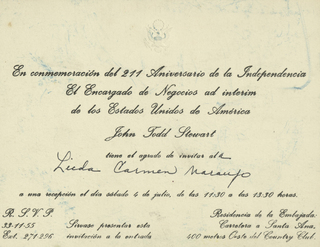 En conmemoración del 211 Aniversario de la Independencia
El Encargado de Negocios ad interim
de los Estados Unidos de América
John Todd Stewart
tiene el agrado de invitar al/a
Licda Carmen Naranjo
a una recepción el día sábado 4 de julio, de las 11:30 a las 13:30 horas.
R. S. V. P.
33-11-55
Ext. 271-296
Sírvase presentar esta
invitación a la entrada
Residencia de la Embajada:
Carretera a Santa Ana,
400 metros Oeste del Country Club.